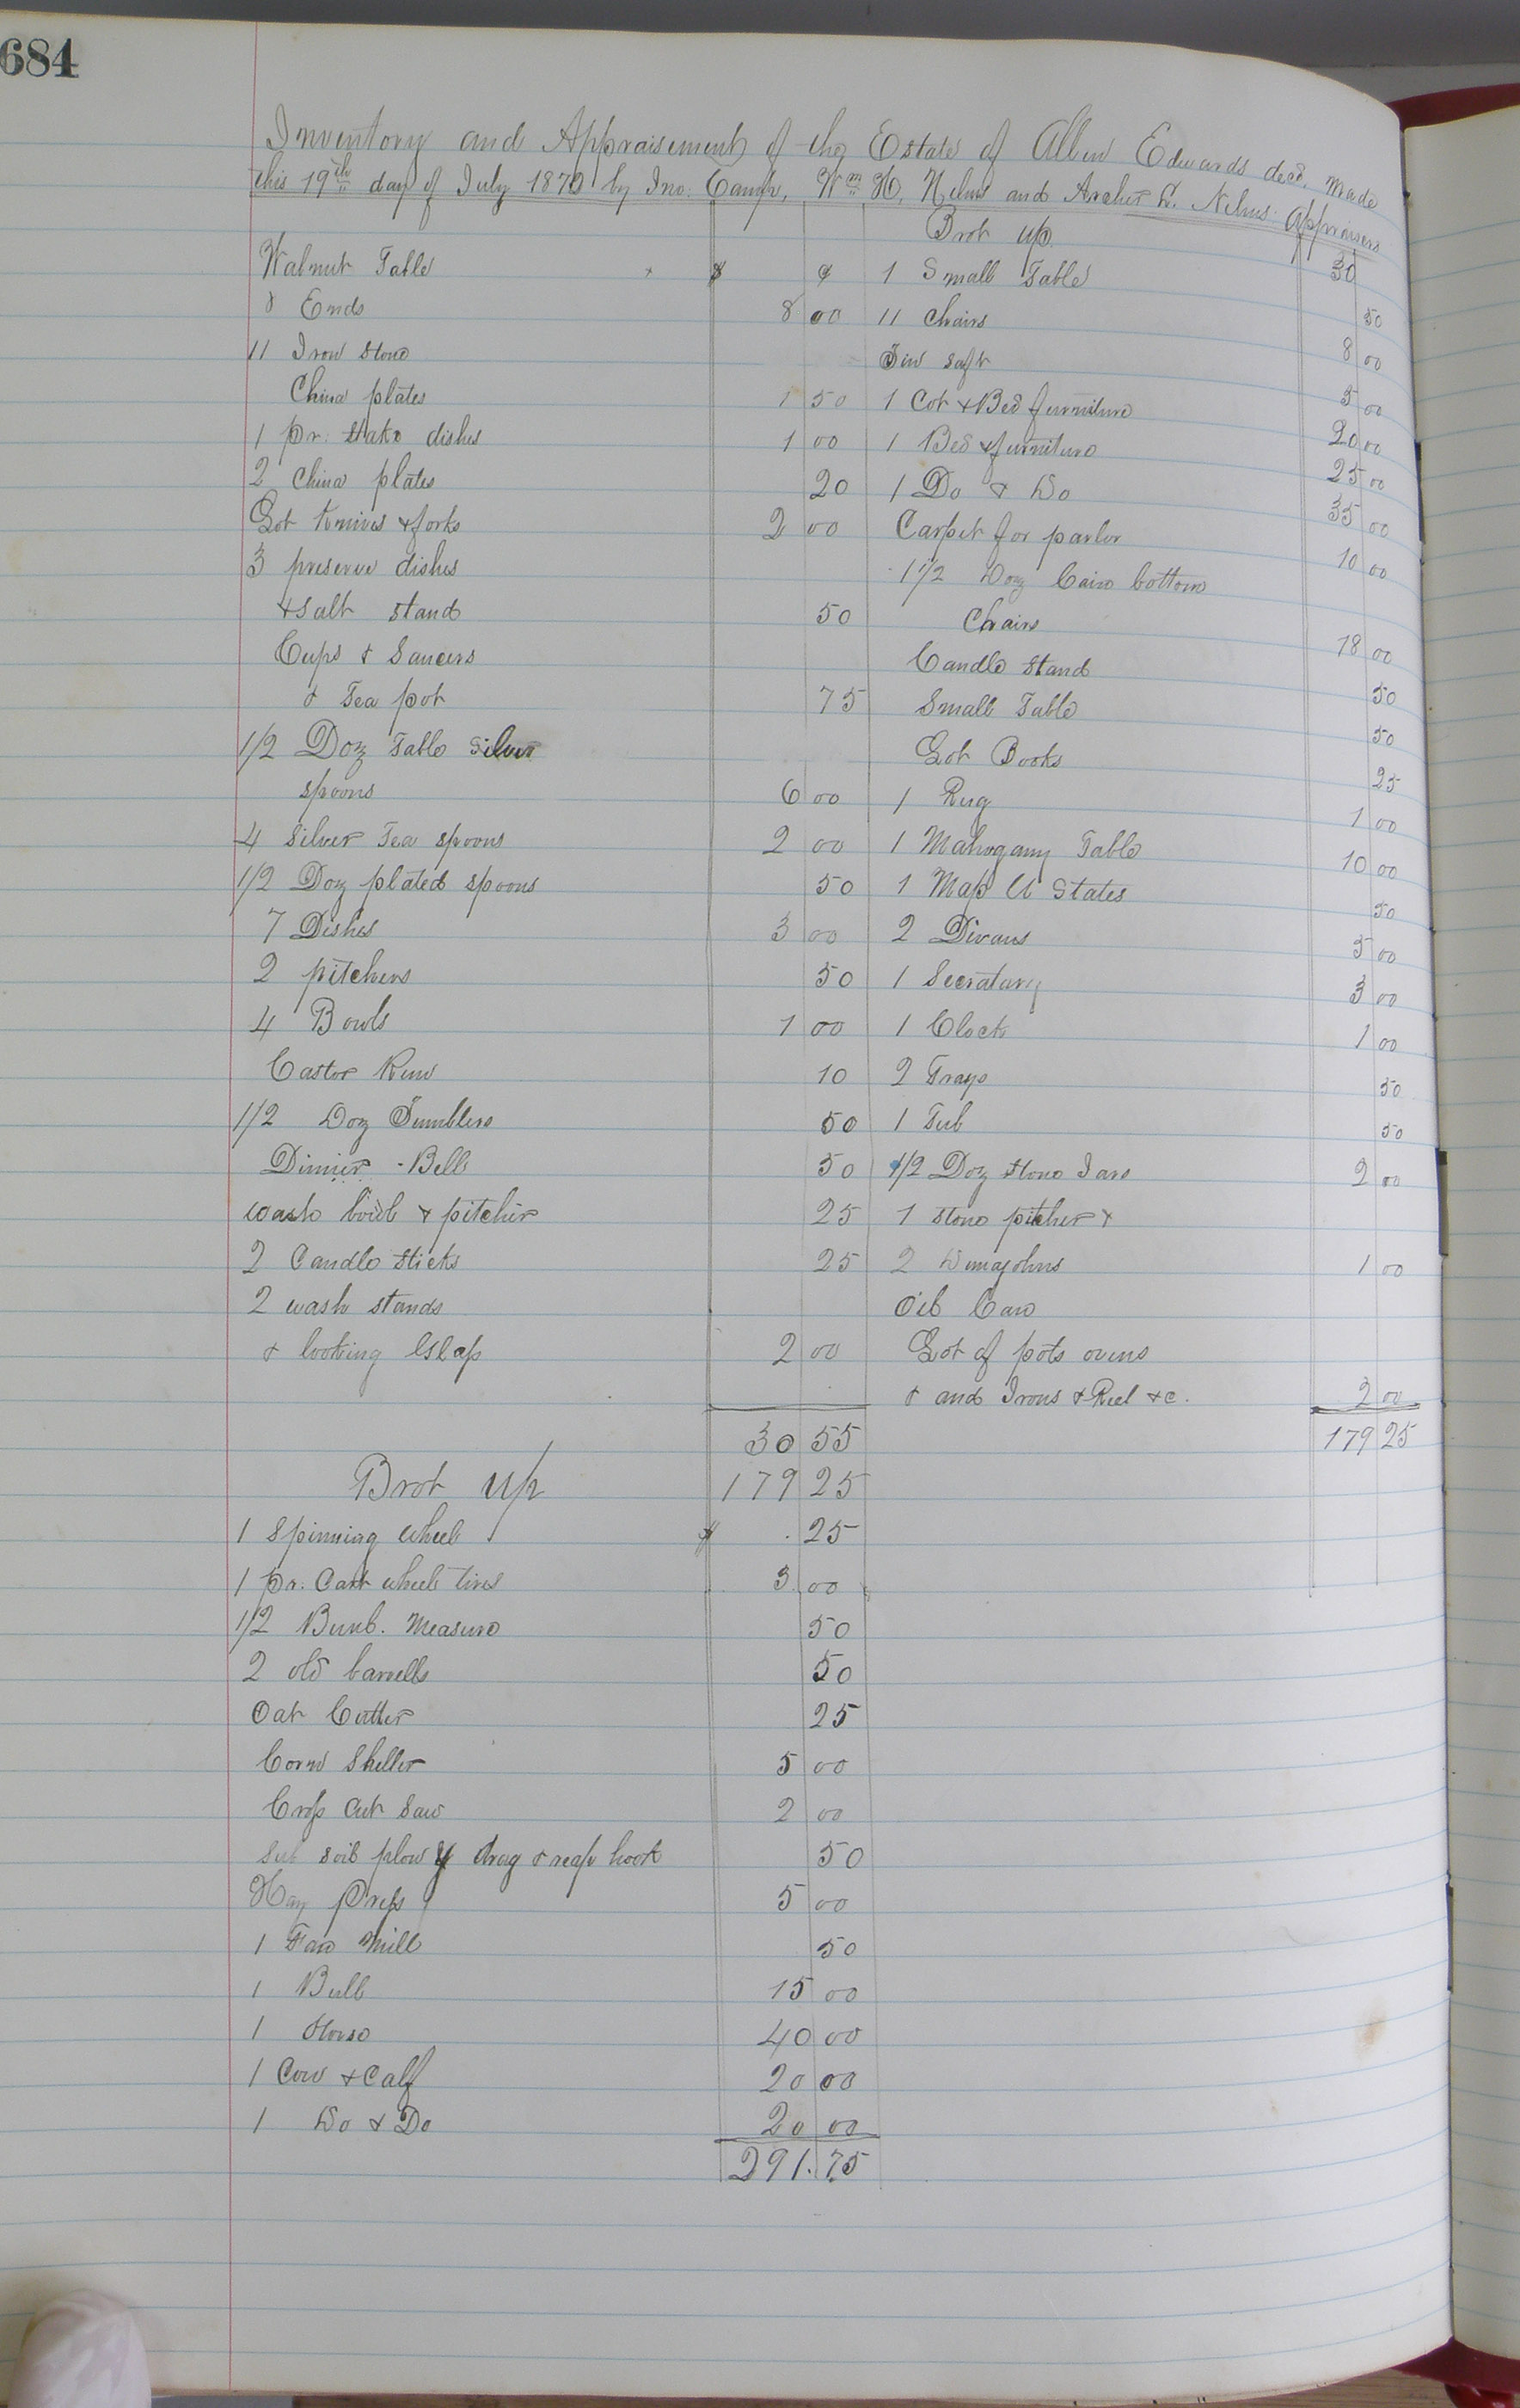 684
Inventory and Appraisement of the Estate of Allen Edwards decd. made
this 19th day of July 1870 by Jno. Camp, Wm H. Nelms and Archer L. Nelms Appraisers
Walnut Table $ ¢
& Ends 8 00
11 Iron stone
China plates 1 50
1 pr. stake dishes 1 00
2 China plates 20
Lot Knives & forks 2 00
3 preserve dishes
& salt stand 50
Cups & Saucers
& Tea pot 75
1/2 Doz Table Silver
spoons 6 00
4 Silver Tea spoons 2 00
1/2 Doz plated spoons 50
7 Dishes 3 00
2 pitchers 50
4 Bowls 1 00
Castor 10
1/2 Doz Tumblers 50
Dinner - Bell 50
wash bowl & pitcher 25
2 Candle sticks 25
2 wash stands
& looking Glass 2 00
30 55
Brot up
1 Small Table 30
50
11 chairs
8 00
Tin safe
5 00
1 Cot & Bed furniture
20 00
1 Bed & furniture
25 00
1 Do & Do
35 00
Carpet for parlor
10 00
1 1/2 Doz Cain bottom
Chairs
18 00
Candle stand
50
Small Table
50
Lot Books
25
1 Rug
1 00
1 Mahogany Table
10 00
1 Map U States
50
2 Divans
5 00
1 Secratary
3 00
1 Clock
1 00
2 Trays
50
1 Tub
50
1/2 Doz stone Jars 2 00
1 stone pitcher &
2 Dimajohns 1 00
Oil Can
Lot of pots ovens
& and Irons & Reel &c. 2 00
179 25
Brot up 179 25
1 Spinning wheel $ .25
1 pr. Cart wheel tires 3 00
1/2 Bush. Measure 50
2 old barrells 50
Oat Cutter 25
Corn Sheller 5 00
Cross Cut Saw 2 00
Sub soil plow drag & reap hook 50
Hay Press 5 00
1 Fan Mill 50
1 Bull 15 00
1 Horse 40 00
1 Cow & Calf 20 00
1 Do & Do 20 00
291.75